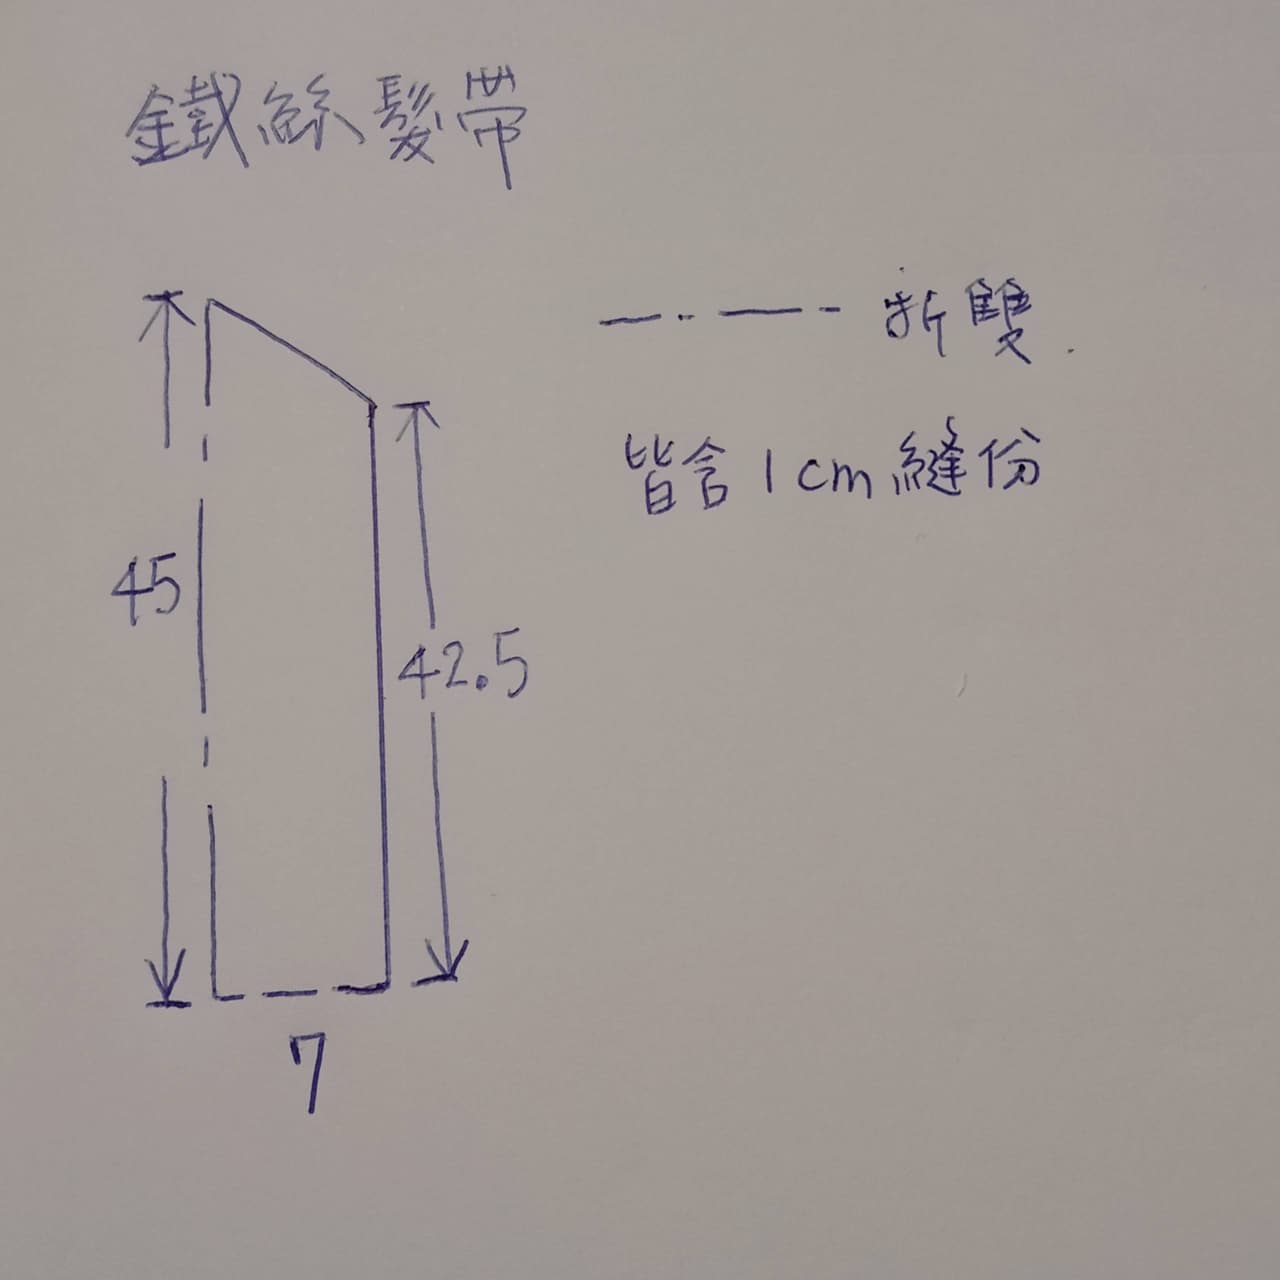 鐵絲髮帶
折雙
皆含1cm縫份
45
42.5
7